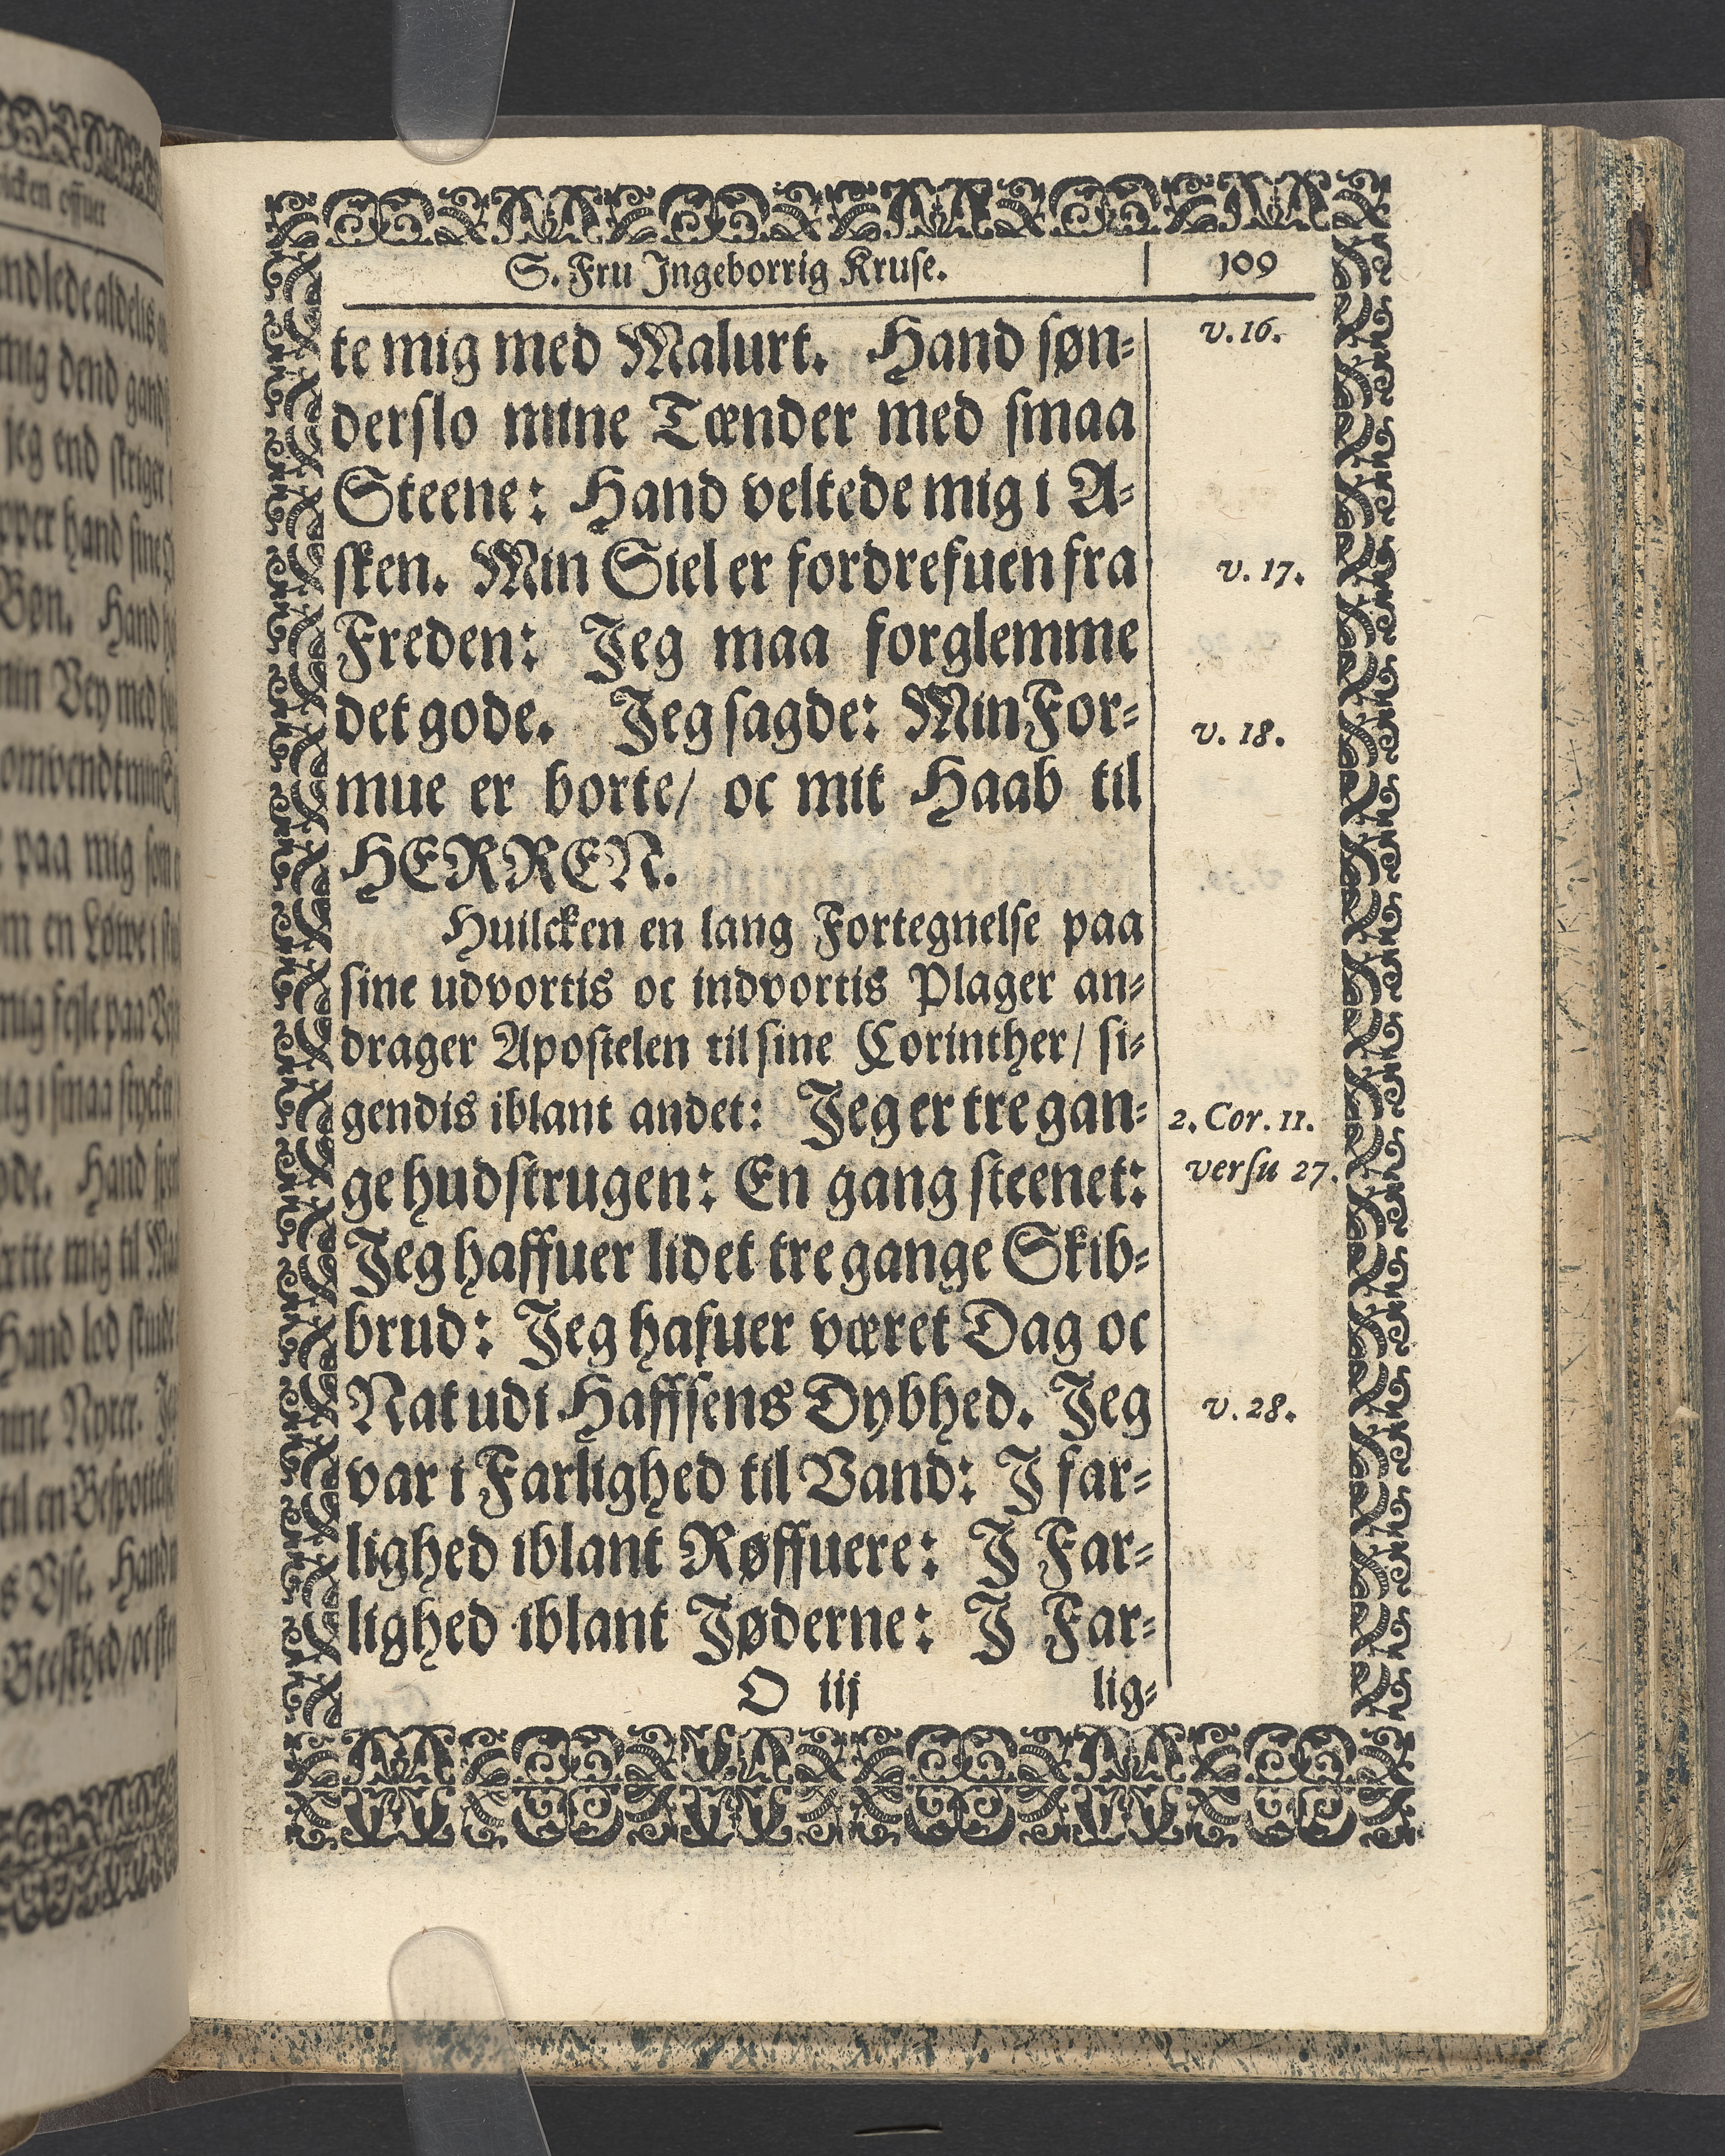 S. Fru Jngeborrig Kruse.
109
te mig med Malurt. Hand søn-
v. 16.
derslo mine Tænder med smaa
Steene: Hand veltede mig i A-
sken. Min Siel er fordrefuen fra
v. 17.
Freden: Jeg maa forglemme
det gode. Jeg sagde: Min For-
v. 18.
mue er borte/ oc mit Haab til
HERREN.
Huilcken en lang Fortegnelse paa
sine udvortis oc indvortis Plager an-
drager Apostelen til sine Corinther/ si-
gendis iblant andet: Jeg er tre gan-
2. Cor. 11.
ge hudstrugen: En gang steenet:
versu 27.
Jeg haffuer lidet tre gange Skib-
brud: Jeg hafuer været Dag oc
Nat udi Haffsens Dybhed. Jeg
v. 28.
var i Farlighed til Vand: J far-
lighed iblant Røffuere: J Far-
lighed iblant Jøderne: J Far-
O iij
lig-